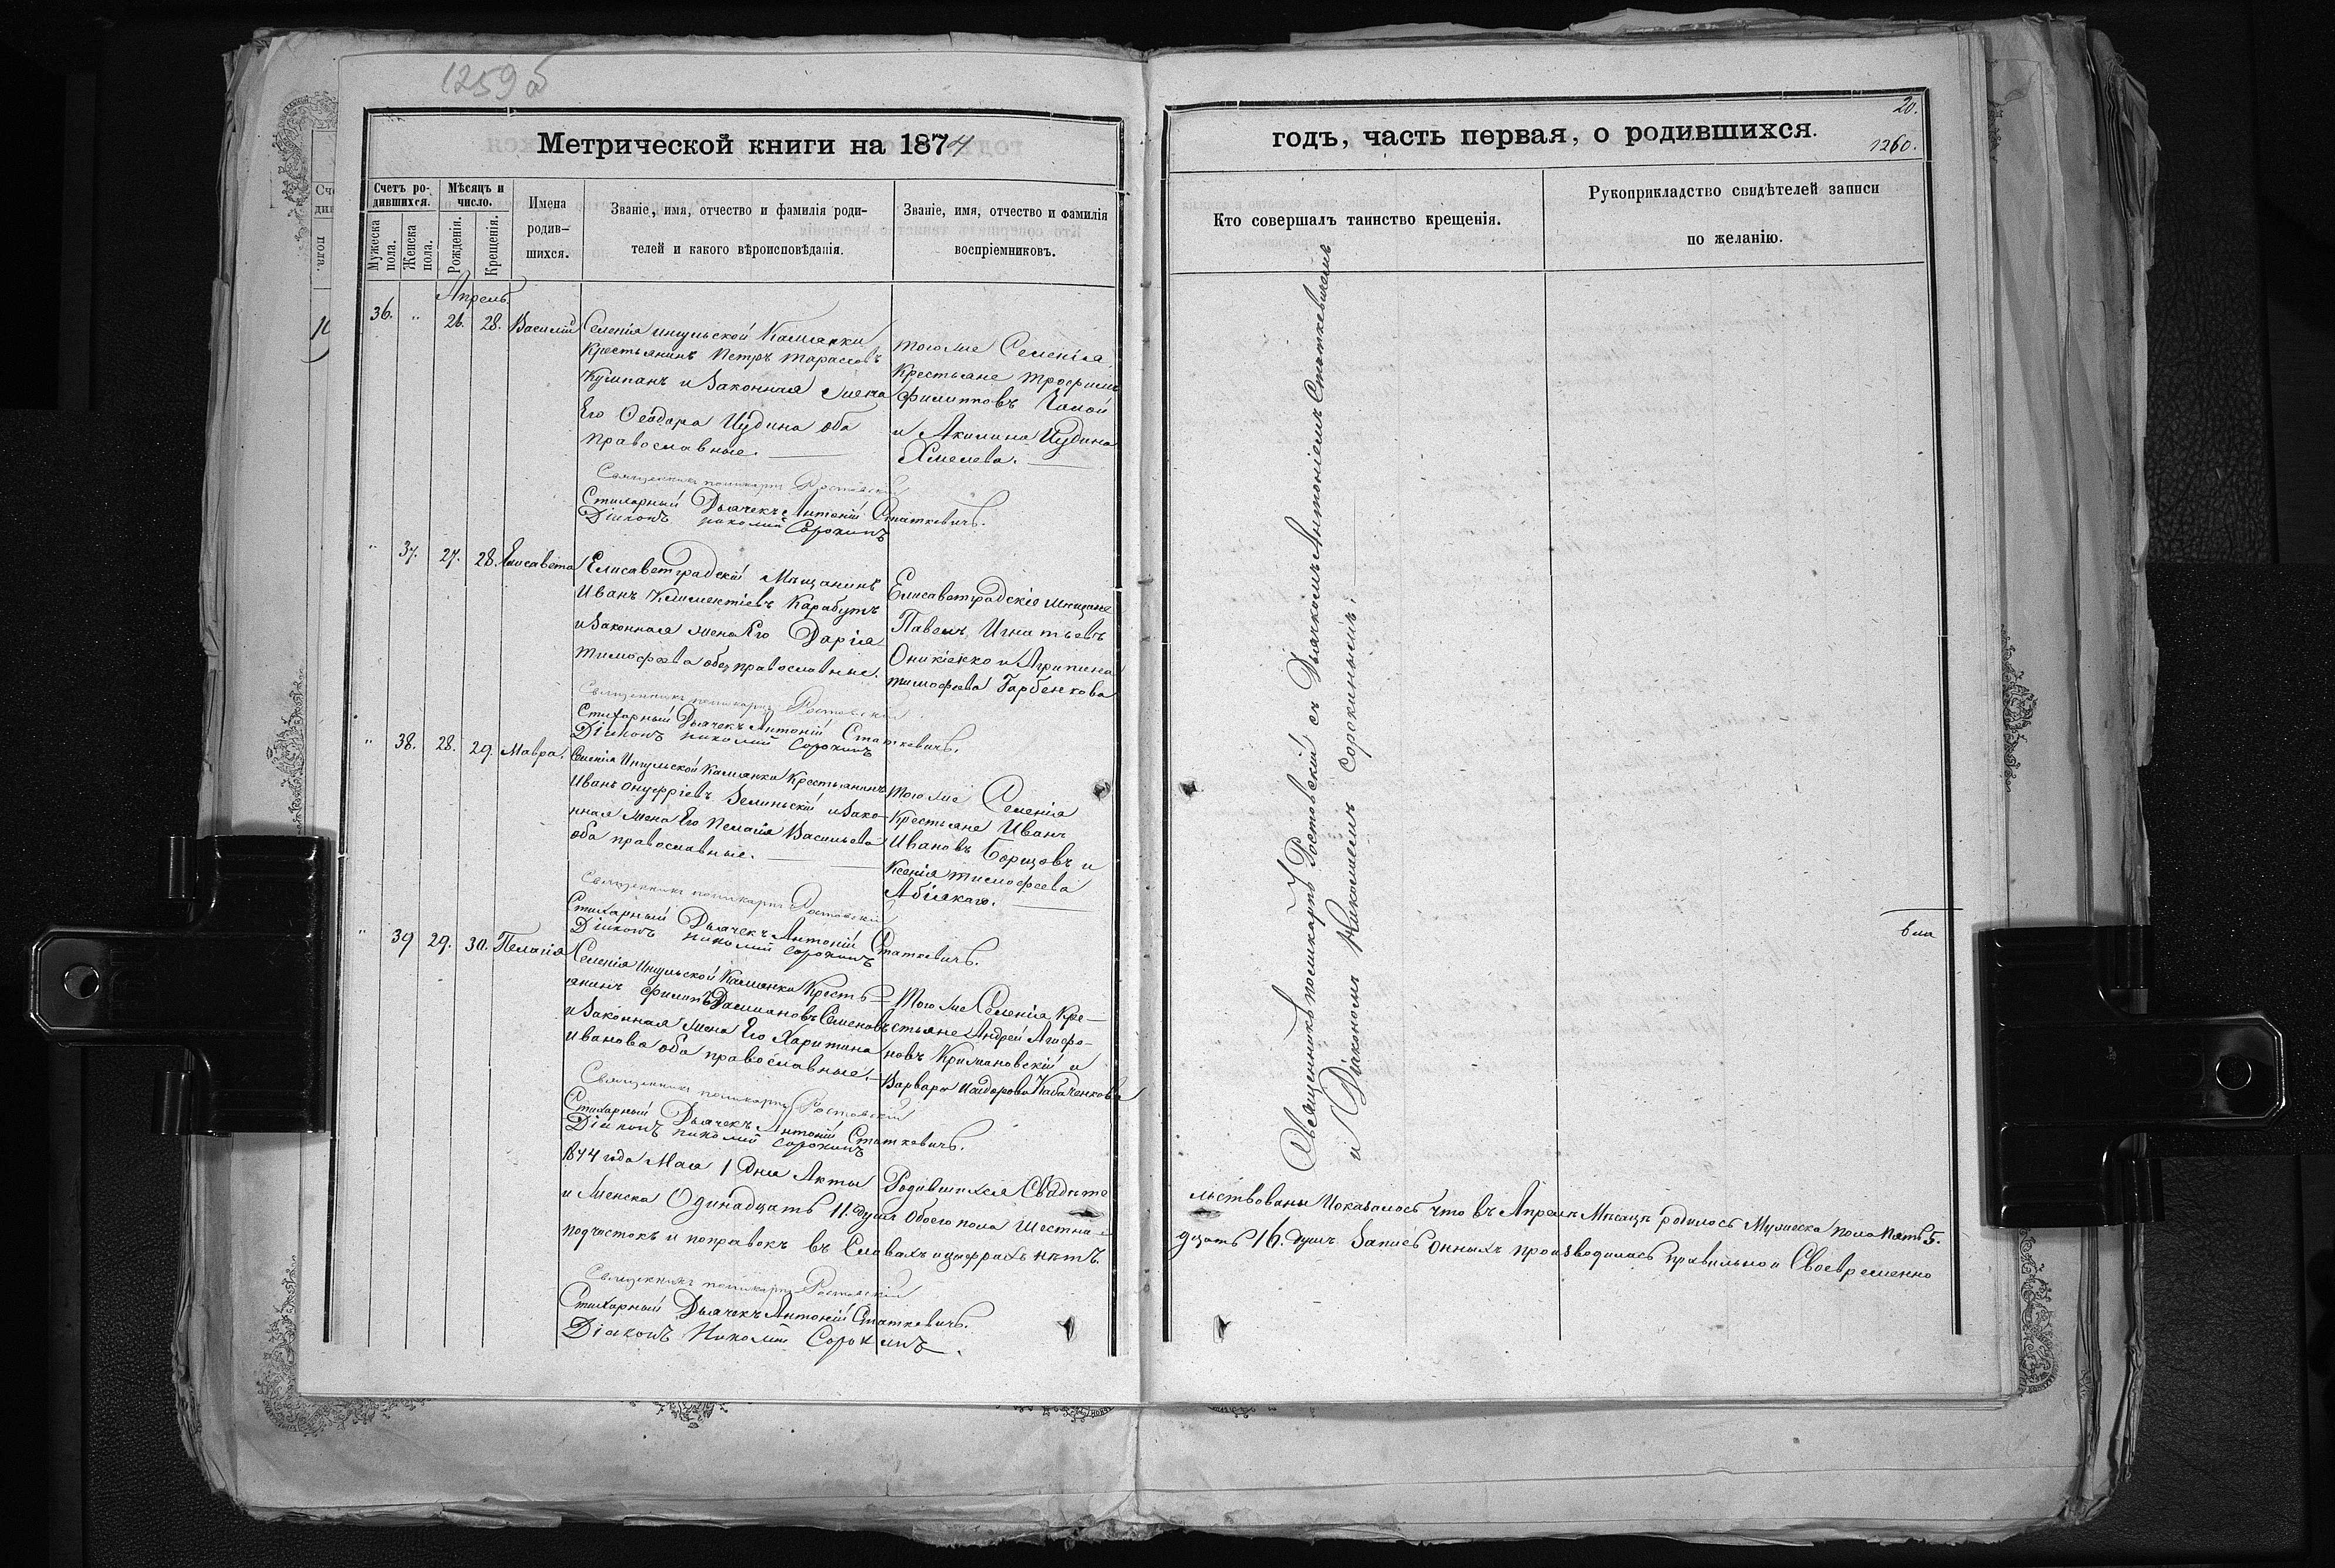 1259 б
Метрической книги на 1874
Счетъ ро-
дившихся.
Мѣсяцъ и
число.
Мужеска
пола.
Женска
пола.
Рожденія.
Крещенія.
Имена
родив-
шихся.
Званіе, имя, отчество и фамилія роди-
телей и какого вѣроисповѣданія.
Званіе, имя, отчество и фамилія
воспріемниковъ.
Апрель.
36. „ 26. 28. Василій
Селенія ингульской Каменки
Крестьянинъ Петръ тарасовъ
Кумпанъ и Законная жена
Его Феодора Иудина оба
православные.
тогоже Селенія
Крестьяне трофимъ
филипповъ
и Акилина Иудина
Хмелева.
Священникъ поликарпъ Ростовскій
Стихарный Дьячекъ Антоній Статкевичъ.
Діаконъ николай Сорокинъ
„ 37. 27. 28. Елисавета
Елисаветградскій Мѣщанинъ
Иванъ Климентіевъ Карабутъ
и Законная жена Его Дарія
тимофеева оба православные.
Елисаветградскіе мещане
Павелъ Игнатьевъ
Оникіенко и Агрипина
тимофеева Гарбенкова
Священникъ поликарпъ Ростовскій
Стихарный Дьячекъ Антоній Статкевичъ.
Діаконъ николай Сорокинъ
„ 38. 28. 29. Мавра.
Селенія Ингульской Каменки Крестьянинъ
Иванъ онуфріевъ Зелинскій и Зако-
нная жена Его Пелагія Васильева
оба православные.
тогоже Селенія
Крестьяне Иванъ
Ивановъ Борщовъ и
Ксенія тимофеева
Священникъ поликарпъ Ростовскій
Стихарный Дьячекъ Антоній Статкевичъ.
Діаконъ николай Сорокинъ
„ 39 29. 30. Пелагія
Селенія Ингульской Каменки Кресть-
янинъ филипъ Даміановъ Семеновъ
и Законная жена Его Харитина
иванова оба православные.
Тогоже Селенія Кре-
стьяне Андрей Агафо-
новъ Крижановскій и
Варвара исидорова Кабаченкова
Священникъ поликарпъ Ростовскій
Стихарный Дьячекъ Антоній Статкевичъ.
Діаконъ николай Сорокинъ
1874 года Мая 1 Дня Акты Родившихся Свидѣте
и Женска Одинадцать 11. душъ Обоего пола Шестна-
подчистокъ и поправокъ въ Словахъ и цыфрахъ нѣтъ.
Священникъ поликарпъ Ростовскій
Стихарный Дьячекъ Антоній Статкевичъ.
Діаконъ Николай Сорокинъ.
20.
годъ, часть первая, о родившихся.
1260.
Кто совершалъ таинство крещенія.
Рукоприкладство свидѣтелей записи
по желанію.
Священникъ поликарпъ Ростовскій съ Дьячкомъ Антоніемъ Статкевичемъ
и Діакономъ Николаемъ Сорокинымъ.
льствованы Показалось что въ Апреле Месяце родилось Мужеска пола пять 5.
дцать 16. душъ Запись онныхъ производилась правильно и Своевременно